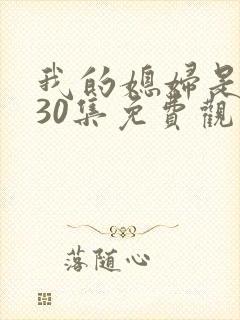 我的媳婦是
30集免費觀
落随心